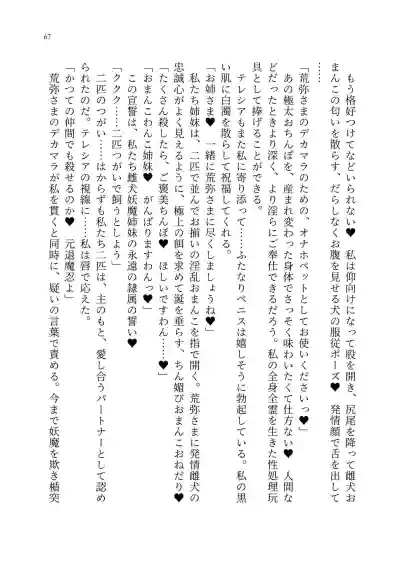 67
もう格好つけてなどいられない♥　私は仰向けになって股を開き、尻尾を降って雌犬お
まんこの匂いを散らす、だらしなくお腹を見せる犬の服従ポーズ♥　発情顔で舌を出して
……
「荒弥さまのデカマラのための、オナホペットとしてお使いくださいっ♥
あの極太おちんぽを、産まれ変わった身体でさっそく味わいたくて仕方ない♥　人間な
どだったときより深く、より淫らにご奉仕できるだろう。私の全身全霊を生きた性処理玩
具として捧げることができる。
テレシアもまた私に寄り添って……ふたなりペニスは嬉しそうに勃起している。私の黒
い肌に白濁を散らして祝福してくれる。
「お姉さま♥　一緒に荒弥さまに尽くしましょうね♥」
私たち姉妹は、二匹で並んでお揃いの淫乱おまんこを指で開く。荒弥さまに発情雌犬の
忠誠心がよく見えるように、極上の餌を求めて涎を垂らす、ちん媚びおまんこおねだり♥
「たくさん殺したら、ご褒美ちんぽ♥　ほしいですわん……♥」
「おまんこわんこ姉妹♥　がんばりますわんっ♥」
この宣誓は、私たち雌犬妖魔姉妹の永遠の隷属の誓い♥
「ククク……二匹つがいで飼うとしよう」
二匹のつがい……はからずも私たち二匹は、主のもと、愛し合うパートナーとして認め
られたのだ。テレシアの視線に……私は唇で応えた。
「かつての仲間でも殺せるのか♥　元退魔忍よ」
荒弥さまのデカマラが私を貫くと同時に、疑いの言葉で責める。今まで妖魔を欺き楯突